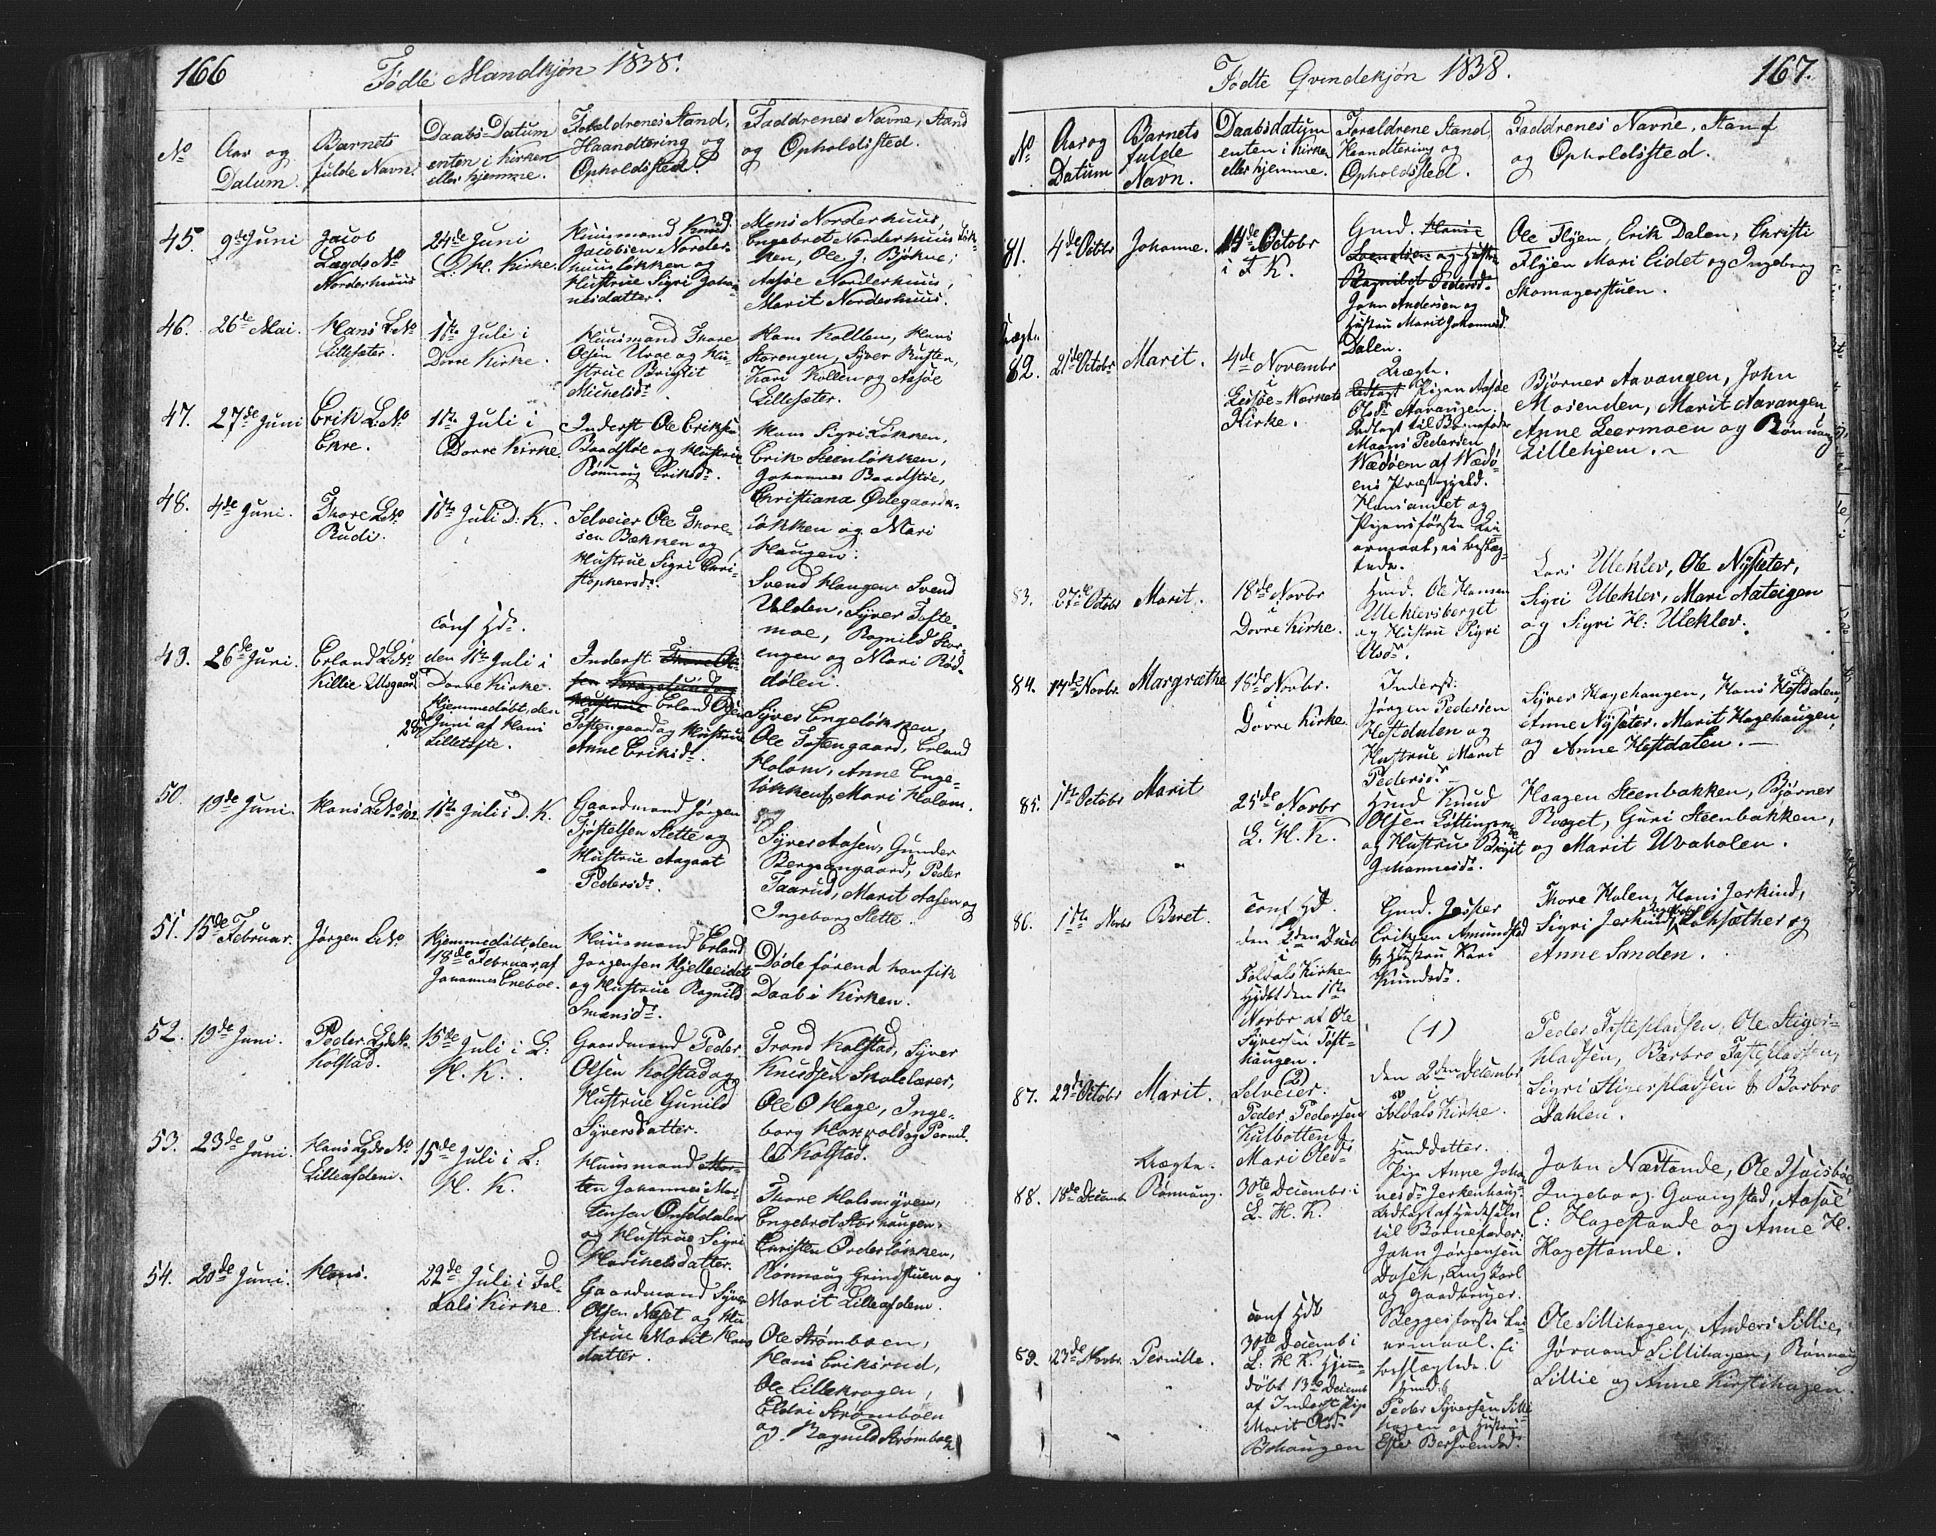 166
Fødte Mandkjøn 1838.
No
Aar og
Datum.
Barnets
fulde Navn.
Daabs-Datum
enten i Kirken
eller hjemme.
Forældrenes Stand,
Haandtering og
Opholdssted.
Faddrenes Navne, Stand
og Opholdssted.
45.
9de Juni
Jacob
Lægds No
Norderhuus
24de Juni
L. H. Kirke.
Huusmand Knud
Jacobsen Norder-
huusløkken og
Hustrue Sigri Johan-
nesdatter.
Mons Norderhuus,
Engebret Norderhuus Løk-
ken, Ole J. Bjøkne,
Aasøe Norderhuus,
Marit Norderhuus.
46.
26de Mai.
Hans L. No
Lillesæter.
1ste Juli i
Dovre Kirke.
Huusmand Thore
Olsen Uroe og Hu-
strue Brigtit
Michelsdr.
Hans Kollen, Hans
Storengen, Syver Rusten,
Kari Kollen og Aasøe
Lillesæter.
47.
27de Juni
Erik L. No
Ekre.
1ste Juli i
Dovre Kirke.
Inderst Ole Eriksen
Baadstøe og Hustrue
Rønnaug Eriksdr.
Hans Sigri Løkken,
Erik Steenløkken,
Johannes Baadstøe,
Christiana Ødegaards-
løkken og Mari
Haugen.
48.
4de Juni.
Thore L. No
Rudi.
1ste Juli D. K.
Selveier Ole Thore-
sen Bækken og
Hustrue Sigri Chri-
stophersdr.
Svend Haugen Svend
Volden, Syver Tofte-
moe, Ragnild Stor-
engen og Mari Rød-
dølen.
49.
26de Juni.
Erland L. No
Killie Ulsgaard
Conf Hd.
den 1ste Juli i
Dovre Kirke.
Hjemmedøbt, den
28de Juni af Hans
Lilletofte.
Inderst Thore Ol-
sen
Hustrue Erland Olsen
Toftengaard og Hustrue
Anne Eriksdr.
Syver Engeløkken,
Ole Toftengaard, Erland
Holom, Anne Enge-
løkken & Mari Holom.
50.
19de Juni.
Hans L. No 102.
1ste Juli i D. K.
Gaardmand Jørgen
Tjøstelsen Slette og
Hustrue Aagaat
Pedersdr.
Syver Aasen, Gunder
Bergsengaard, Peder
Taarud, Marit Aasen og
Ingeborg Slette.
51.
15de Februar.
Jørgen L. No
Hjemmedøbt, den
18de Februar, af
Johannes Eneboe.
Huusmand Erland
Jørgensen Hjelleeidet
og Hustrue Ragnild
Simensdr.
Døde førend han fik
Daab i Kirken.
52.
19de Juni.
Peder L. No
Kolstad.
15de Juli i L:
H. K.
Gaardmand Peder
Olsen Kolstad og
Hustrue Gunild
Syversdatter.
Trond Kolstad, Syver
Knudsen Skolelærer,
Ole O Hage, Inge-
borg Horvold og Pernil-
le Kolstad.
53.
23de Juni.
Hans Lgds No
Lilleafdem.
15de Juli i L:
H. K.
Huusmand Mor-
ten Johannes Mor-
tensen Onseldalen
og Hustrue Sigri
Halchelsdatter.
Thore Holsmyren,
Engebret Storhaugen,
Christen Orderløkken,
Rønnaug Grindstuen og
Marit Lilleafdem.
54.
20de Juni.
Hans.
22de Juli i Fol-
dals Kirke.
Gaardmand Syver
Olsen Næset og Hu-
strue Marit Hans
datter.
Ole Strømboen,
Hans Eriksrud,
Ole Lillekrogen,
Eldri Strømboen
og Ragnild Strømboen
167.
Fødte Qvindekjøn 1838.
No
Aar og
Datum
Barnets
fulde
Navn.
Daabsdatum
enten i Kirken
eller hjemme.
Forældrene Stand,
Haandtering og
Opholdssted.
Faddrenes Navne, Stand
og Opholdssted.
81.
4de Octobr
Johanne.
14de Octobr
i F. K.
Gmd. Hans
Svendsen og Hustru
Ragnild Pedersdr
John Andersen og
Hustru Marit Johannesd
Dalen.
Ole Flyen, Erik Dalen, Christi
Flyen Mari Eidet og Ingeborg
Skomagerstuen.
Uægte.
82.
21de Octobr
Marit.
4de Novembr
i
Lessøe-Værnets
Kirke.
Uægte.
Udlagt Pigen Aasøe
Olsdr. Aavangen.
Udlagt til Barnefader
Maans Pedersen
Vædøen af Vædø-
ens Præstegjeld.
Hans andet og
Pigens første Lei-
ermaal, ei bestæg-
tede.
Bjørner Aavangen, John
Mosenden, Marit Aavangen,
Anne Leermoen og Rønnaug
Lillehjem.
83.
27de Octobr
Marit.
18de Novbr
Dovre Kirke.
Hmd. Ole Hansen
Uleklevsberget
og Hustru Sigri
Olsdr.
Lars Uleklev, Ole Nysæter,
Sigri Uleklev, Mari Aateigen
og Sigri H: Uleklev.
84.
14de Novbr.
Margræthe
18de Novbr.
Dovre Kirke.
Inderst:
Jørgen Pedersen
Hestdalen og
Hustrue Marit
Pedersdr.
Syver Hagehaugen, Hans Hestdalen,
Anne Nysæter. Marit Hagehaugen,
og Anne Hestdalen.
85.
1ste Octobr
Marit
25de Novbr
L. H. K.
Hmd Knud
Olsen Løttingsmoe
og Hustrue Brigit
Johannesdr.
Haagen Steenbakken, Bjørner
Røaget, Guri Steenbakken,
og Marit Uvaholen.
86.
1ste Novbr
Beret.
Conf Hd.
den 2den Decb
i
Foldals Kirke
Hjdbt den 1ste
Novbr af Ole
Syversen Toft-
haugen.
Gmd. Jesper
Eriksen Amundstad
& Hustru Kari
Knudsdr.
(1)
Thore Holen, Hans Jerkind,
Sigri Jerkind, Løkfæther og
Anne Sanden.
87.
29de Octobr
Marit.
(2)
Selveier.
Peder Pedersen
Kulbotten &
Mari Olsdr
den 2den Decembr
i
Foldals Kirke.
Peder Tøfteplassen, Ole Stiger-
pladsen, Barbro Tøftepladsen,
Sigri Stigerpladsen & Barbro
Dahlen.
88.
18de Decemb
Uægte.
Rønnaug.
30te Decembr i
L. H. K.
Hmd datter.
Pige Anne Johan-
nesdr Jerkenhaug-
til Barnefader:
John Jørgensen
Dosen, Ungkarl
og Gaardbruger.
Begges første Lei-
ermaal. Ei
beslægtede.
John Næstande, Ole
Ingeborg Gravigstad, Aasøe
E: Hagestande og Anne H.
Hagestande.
89.
23de Novbr.
Pernille.
Conf Hdb
30te Decemb i
L: H. K. Hjem-
døbt 13de Decemb
af Inderst Pige
Marit Olsdr
Bøhaugen
Hmd:
Peder Syversen Silli-
hagen og Hustru
Ester Bersvendsd.
Ole Sillihagen, Anders Sillie,
Jøraand Sillihagen, Rønnaug
Sillie og Anne Kirstihagen.